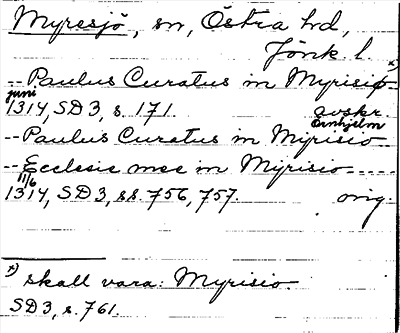 Myresjö, sn, Östra hd,
Jönk. l.
-- Paulus Curatus in Myrisip x)
juni
1314, SD 3, s. 171. avskr.
Örnhjelm
-- Paulus Curatus in Myrisio
-- Ecclesie mee in Myrisio ----
11/6
1314, SD 3, ss. 756, 757. orig.
x) skall vara: Myrisio.
SD 3, s. 761.